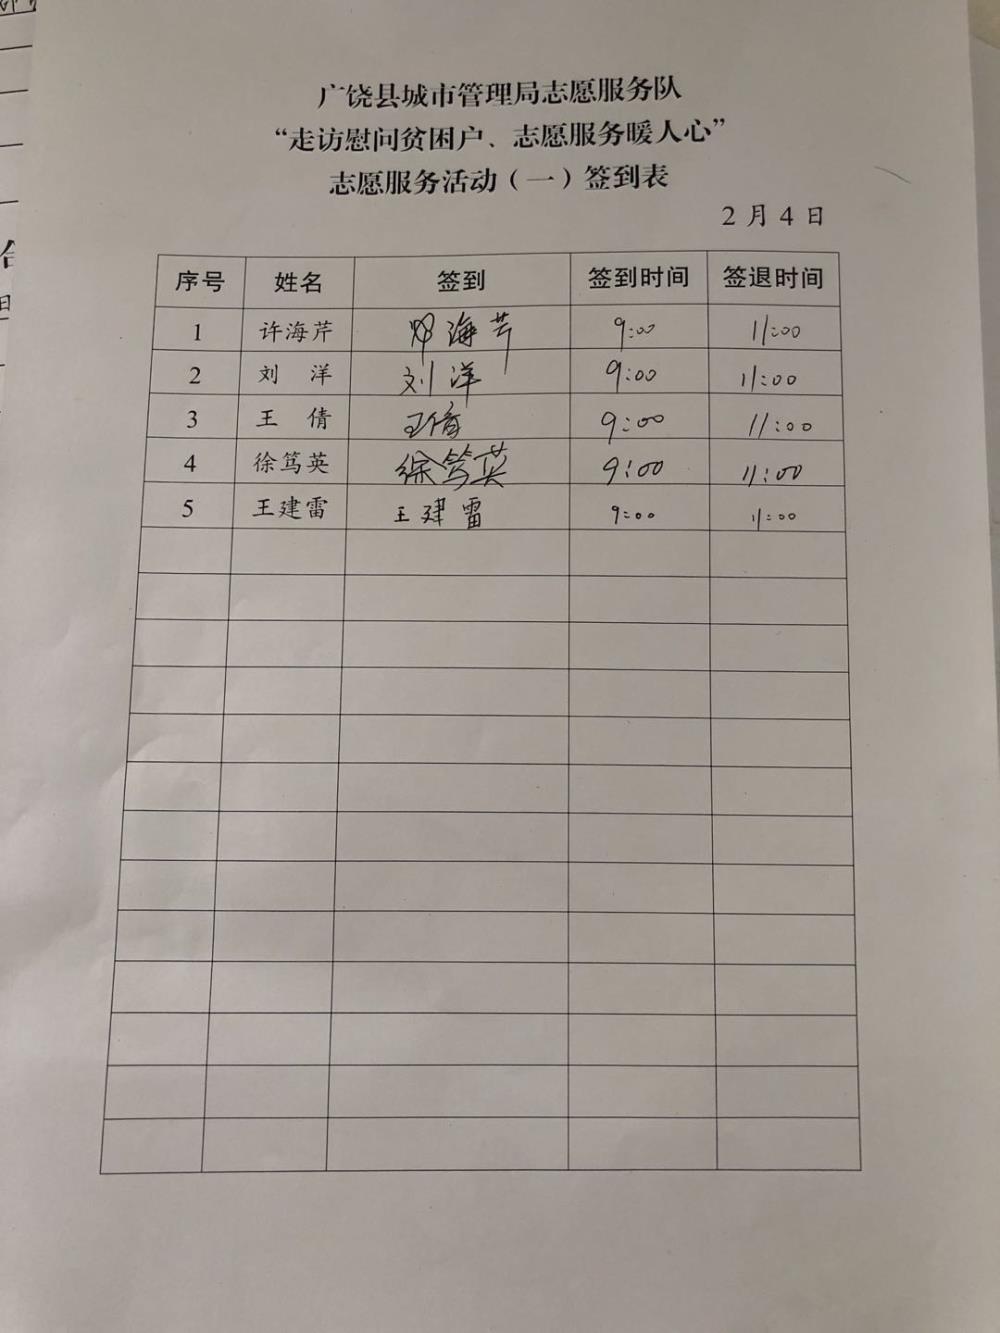 广饶县城市管理局志愿服务队
“走访慰问贫困户、志愿服务暖人心”
志愿服务活动（一）签到表
2月4日
序号 姓名 签到 签到时间 签退时间
1 许海芹 海芹 9:00 11:00
2 刘 洋 刘洋 9:00 11:00
3 王 倩 王倩 9:00 11:00
4 徐笃英 徐笃英 9:00 11:00
5 王建雷 王建雷 9:00 11:00